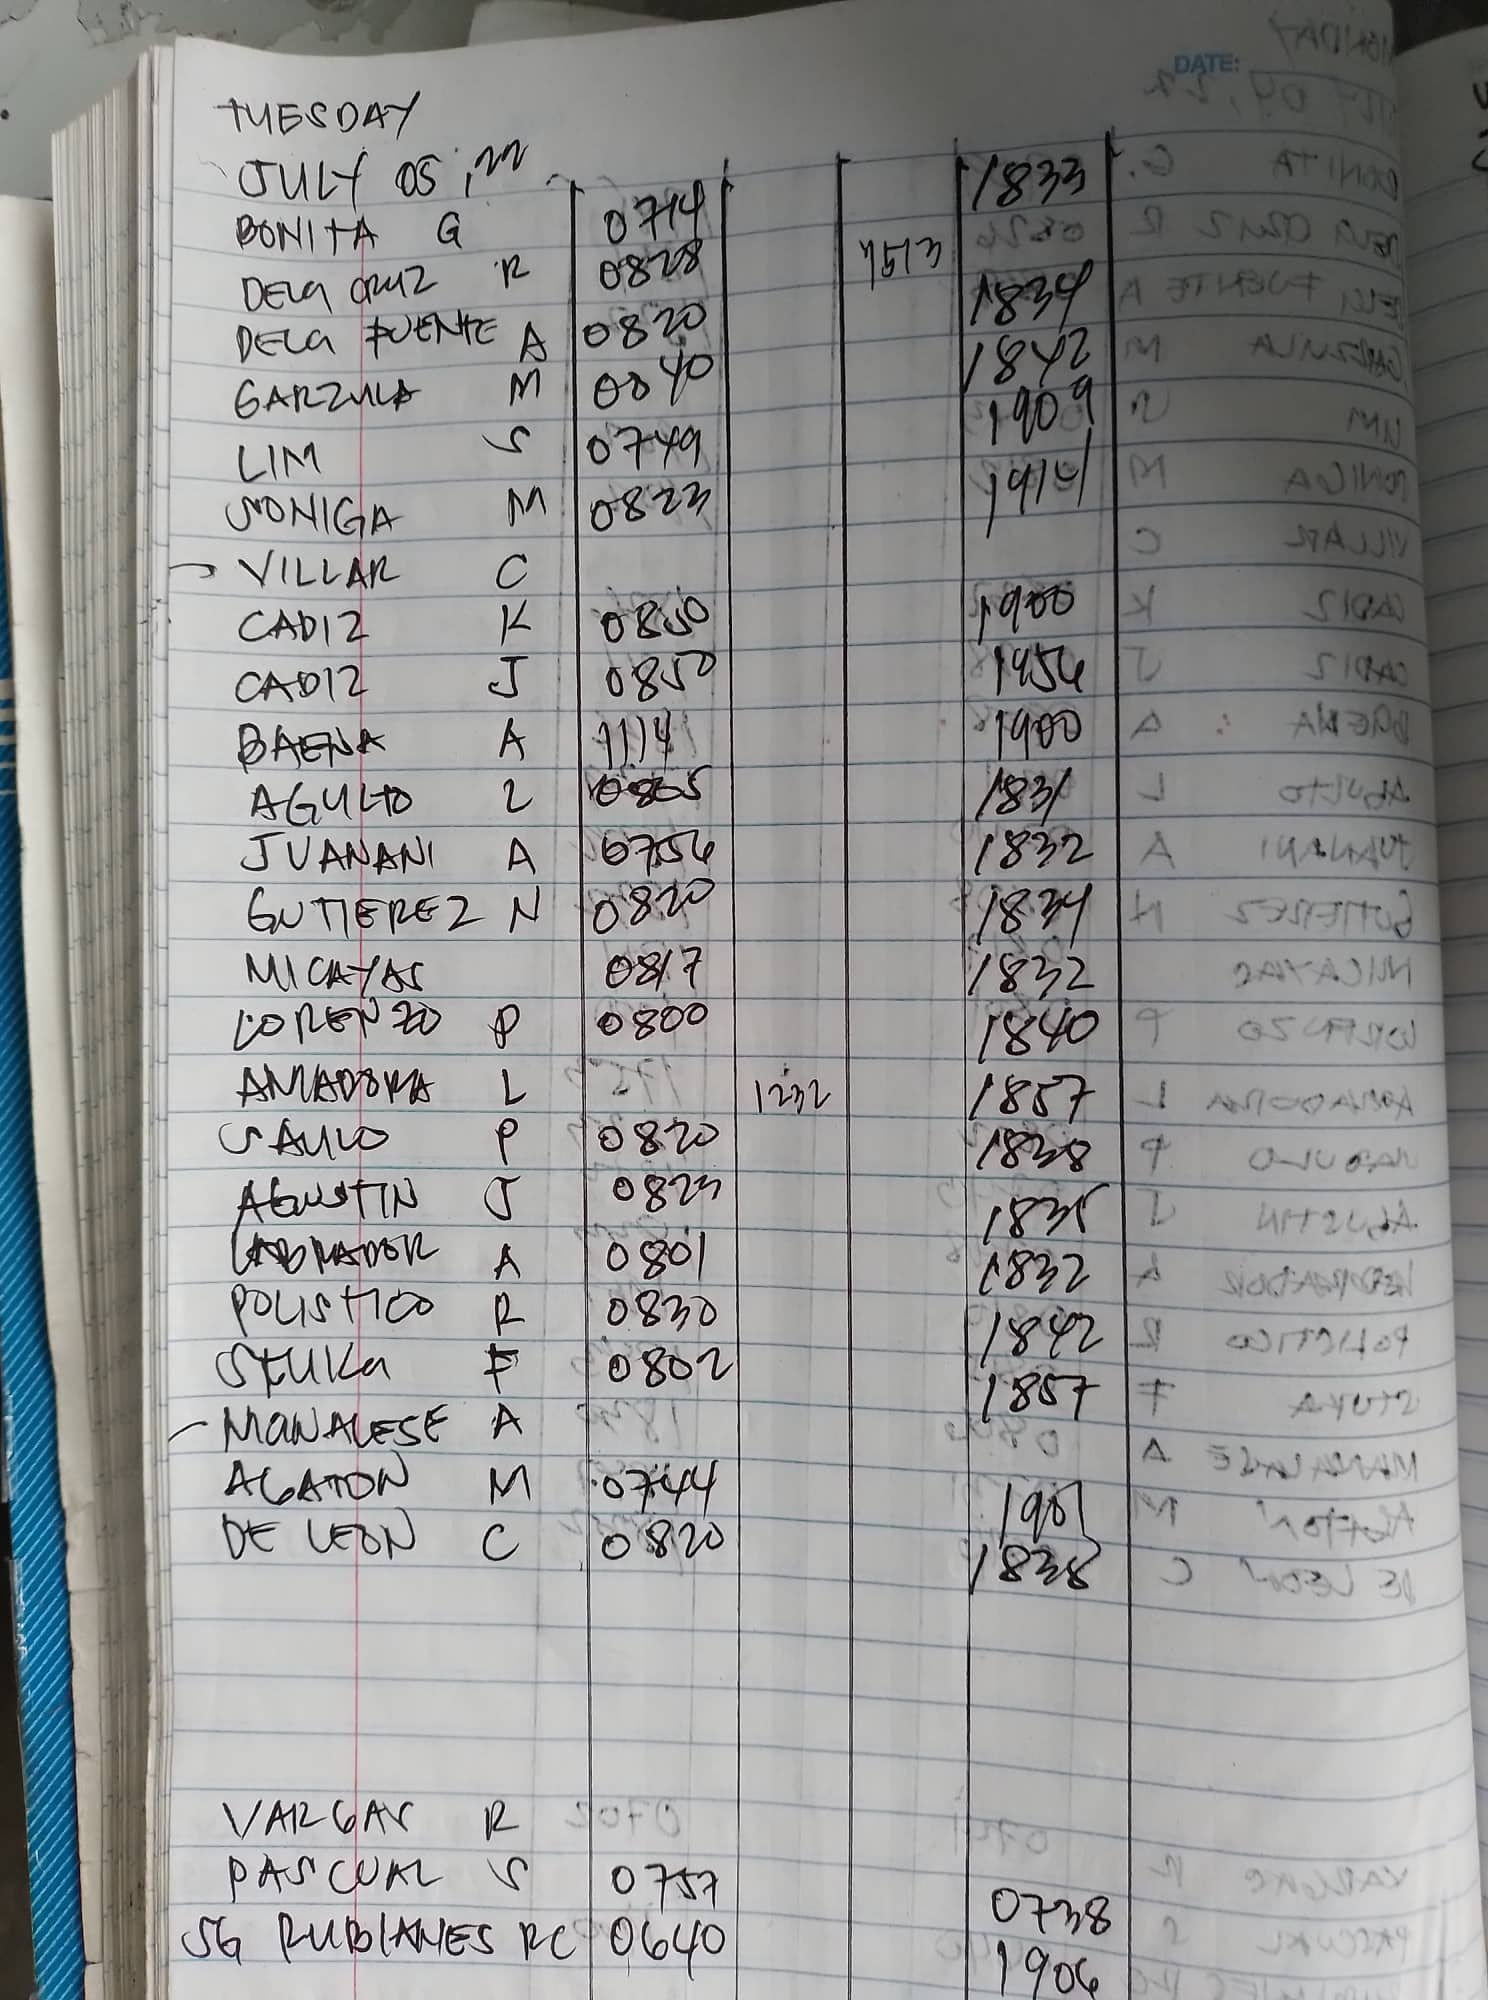 DATE:
TUESDAY
JULY 05, 22
BONITA G 0714 1833
DELA CRUZ R 0828 1513
DELA FUENTE A 0820 1834
GARZULA M 0840 1842
LIM S 0749 1909
SONIGA M 0823 1914
VILLAR C
CADIZ K 0850 1900
CADIZ J 0850 1956
BAENA A 1114 1900
AGULTO L 0805 1831
JUANANI A 0756 1832
GUTIEREZ N 0820 1834
MICAYAS 0817 1832
LORENZO P 0800 1840
AMADORA L 1232 1857
SAULO P 0820 1838
AGUSTIN J 0823 1835
LABRADOR A 0801 1832
POLISTICO R 0830 1842
STUKA F 0802 1857
MONALESE A
AGATON M 0744 1901
DE LEON C 0820 1838
VARGAS R
PASCUAL S 0757 0738
SG RUBIANES RC 0640 1906